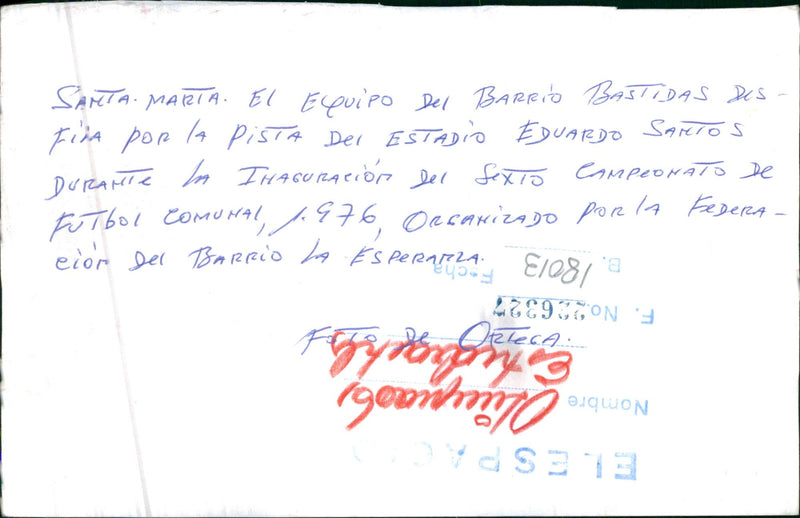 SANTA-MARTA. El EQUIPO DEl BARRIO BASTIDAS DES-
FILA POR lA PISTA DEl ESTADIO EDUARDO SANTOS
DURANTE lA INAGURACIÓN DEl SEXTO CAMPEONATO DE
FUTbOl COMUNAl, 1.976, ORGANIZADO POR lA FEDERA-
CIÓN DEl BARRIO lA ESPERANZA.
B. 18013 Fecha
F. No. 226327
FOTO DE ORTEGA.
Nombre
EL ESPACIO